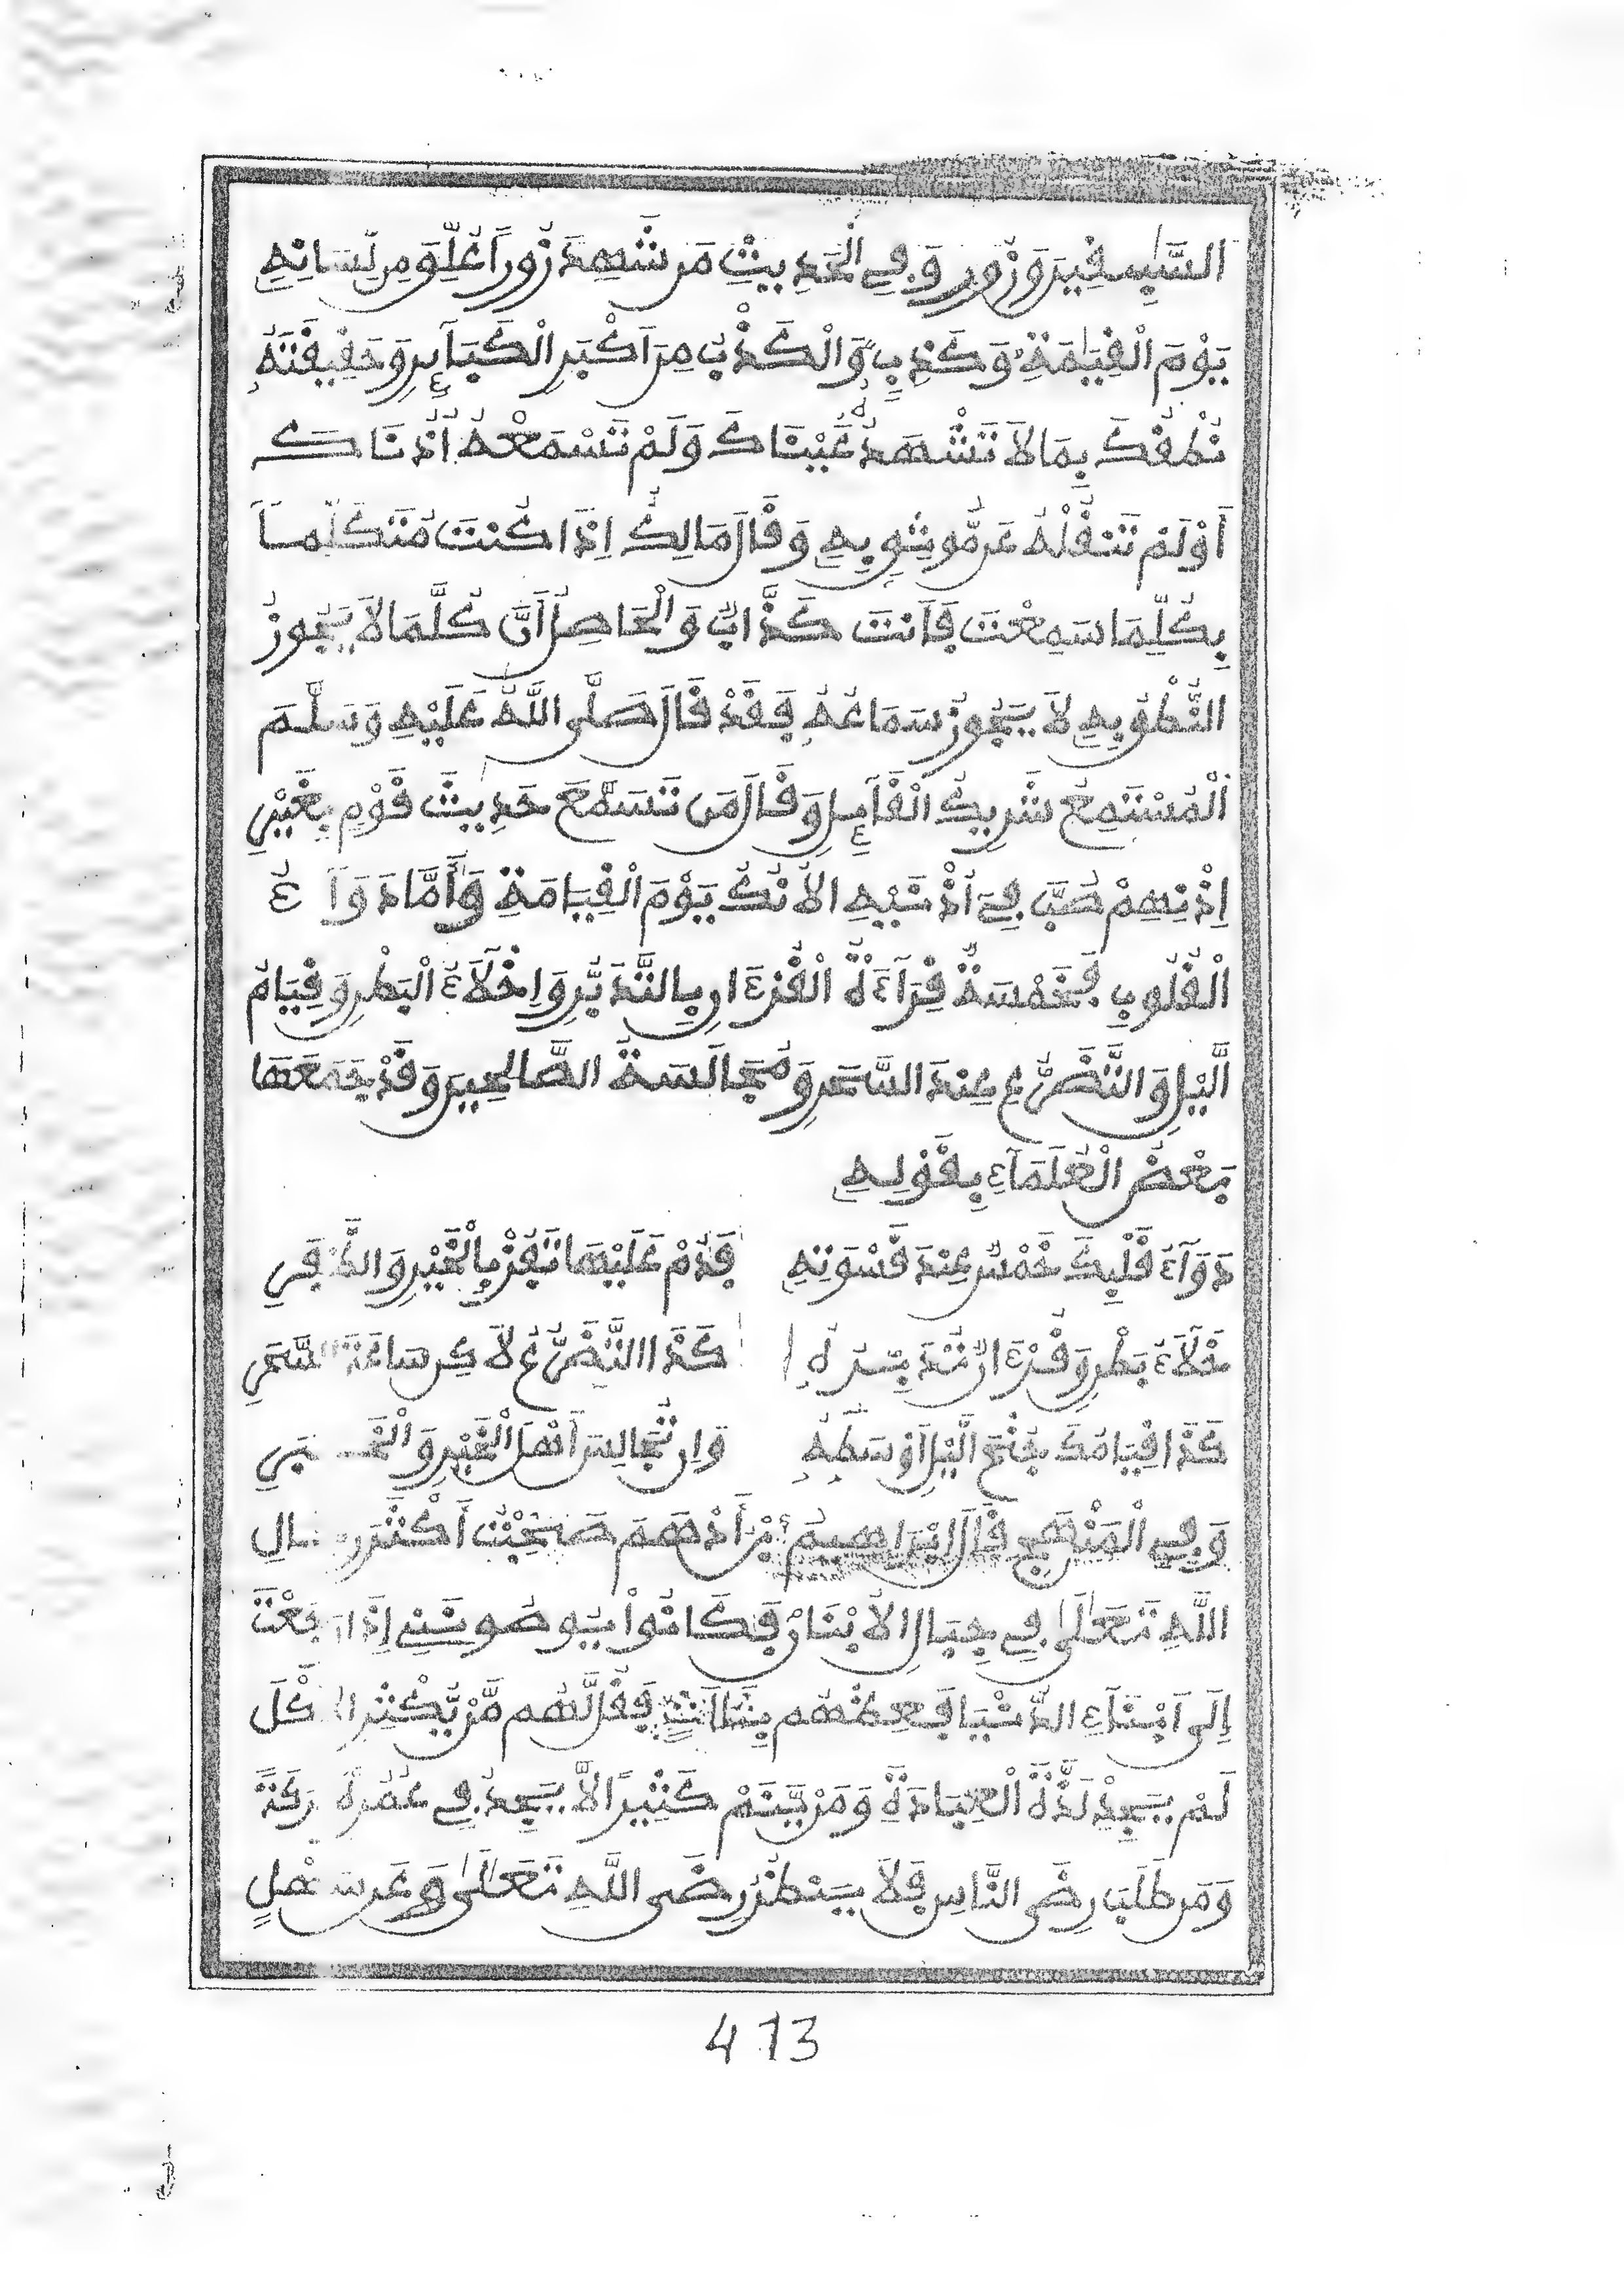 السَّٰبِفِينَ وَزُورٍ وَفِي الْحَدِيثِ مَن شَهِدَ زُوراً عُلِّقَ مِن لِّسَانِهِ
يَوْمَ الْقِيَٰمَةِ وَكَذِبٍ وَالْكَذْبُ مِنَ اَكْبَرِ الْكَبَآئِرِ وَحَقِيقَتُهُ
نُطْقُكَ بِمَا لاَ تَشْهَدُهُ عَيْنَاكَ وَلَمْ تَسْمَعْهُ أُذُنَاكَ
أَوْ لَمْ تَنْقُلْهُ عَن مَّوثُوٍ بِهِ وَقَالَ مَالِكُ اِذَا كُنتَ مُتَكَلِّماً
بِكُلِّمَا سَمِعْتَ فَأَنتَ كَذَّابٌ وَالْحَاصِلُ أَنَّ كُلَّمَا لاَ يَجُوزُ
النُّطْقُ بِهِ لاَ يَجُوزُ سَمَاعُهُ فَقَدْ قَالَ صَلَّى اللَّهُ عَلَيْهِ وَسَلَّمَ
اَلْمُسْتَمِعُ شَرِيكُ الْقَآئِلِ وَقَالَ مَن تَسَمَّعَ حَدِيثَ قَوْمٍ بِغَيْرِ
إِذْنِهِمْ صُبَّ فِي أُذْنَيْهِ الاٰنُكُ يَوْمَ الْقِيَامَةِ وَأَمَّا دَوَآءُ
الْقُلُوبِ فَخَمْسَةٌ قِرَآءَةُ الْقُرْءَانِ بِالتَّدَبُّرِ وَإِخْلَآءُ الْبَطْنِ وَقِيَامُ
الَّيْلِ وَالتَّضَرُّعُ عِندَ السَّحَرِ وَمُجَالَسَةُ الصَّالِحِينَ وَقَدْ جَمَعَهَا
بَعْضُ الْعُلَمَآءِ بِقَوْلِهِ
دَوَآءُ قَلْبِكَ خَمْسٌ عِندَ قَسْوَتِهِ فَدُمْ عَلَيْهَا تَفُزْ بِالْخَيْرِ وَالظَّفَرِ
خَلَآءُ بَطْنٍ وَقُرْءَانٌ تَدَبَّرُهُ كَذَا التَّضَرُّعُ لاَكِن سَاعَةَ السَّحَرِ
كَذَا قِيَامُكَ جُنْحَ الَّيْلِ أَوْسَطَهُ وَإِن تُجَالِسَ أَهْلَ الْخَيْرِ وَالْخَبَرِ
وَفِي الْمَنْهَجِ قَالَ اِبْرَاهِيمُ بْنُ أَدْهَمَ صَحِبْتُ أَكْثَرَ رِجَالِ
اللَّهِ تَعَالَىٰ فِي جِبَالِ الْأَبْنَانْ فَكَانُواْ يُوصُونَنِي إِذَا رَجَعْتَ
إِلَى أَبْنَآءِ الدُّنْيَا فَعِظْهُم بِثَلَاثٍ فَقُل لَّهُم مَّن يُّكْثِرِ الأَكْلَ
لَمْ يَجِدْ لَذَّةَ الْعِبَادَةِ وَمَن يَّنَمْ كَثِيراً لاَّ يَجِدُ فِي عُمُرِهِ بَرَكَةً
وَمَن طَلَبَ رِضَى النَّاسِ فَلاَ يَنتَظِرْ رِضَى اللَّهِ تَعَالَىٰ وَعَن سَهْلٍ
413